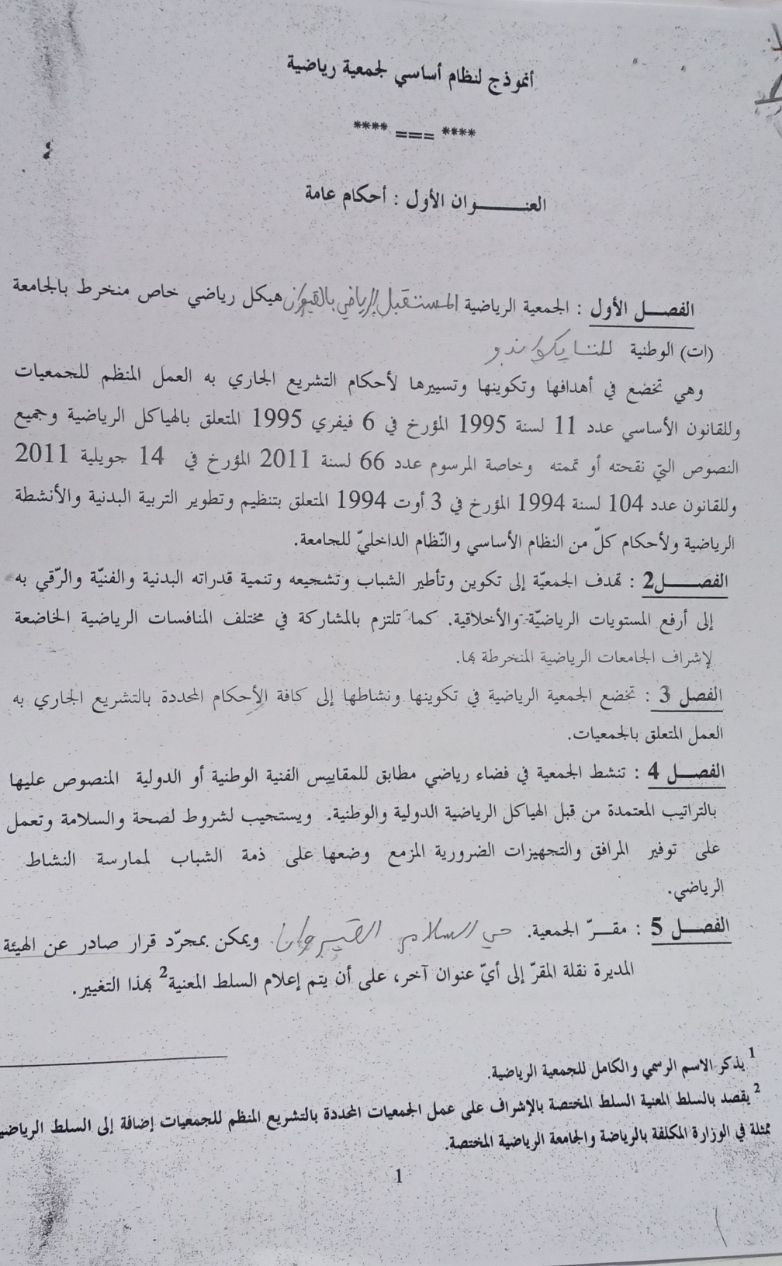 أنموذج لنظام أساسي لجمعية رياضية
**** === ****
العنـــــــوان الأول : أحكام عامة
الفصــل الأول : الجمعية الرياضية المستقبل الرياضي بالقيروان هيكل رياضي خاص منخرط بالجامعة
(ات) الوطنية للتايكواندو
وهي تخضع في أهدافها وتكوينها وتسييرها لأحكام التشريع الجاري به العمل المنظم للجمعيات
وللقانون الأساسي عدد 11 لسنة 1995 المؤرخ في 6 فيفري 1995 المتعلق بالهياكل الرياضية وجميع
النصوص التي نقحته أو تممته وخاصة المرسوم عدد 66 لسنة 2011 المؤرخ في 14 جويلية 2011
وللقانون عدد 104 لسنة 1994 المؤرخ في 3 أوت 1994 المتعلق بتنظيم وتطوير التربية البدنية والأنشطة
الرياضية ولأحكام كلّ من النظام الأساسي والنّظام الداخليّ للجامعة.
الفصــــل2 : تهدف الجمعيّة إلى تكوين وتأطير الشباب وتشجيعه وتنمية قدراته البدنية والفنيّة والرّقي به
إلى أرفع المستويات الرياضيّة والأخلاقية. كما تلتزم بالمشاركة في مختلف المنافسات الرياضية الخاضعة
لإشراف الجامعات الرياضية المنخرطة بها.
الفصل 3 : تخضع الجمعية الرياضية في تكوينها ونشاطها إلى كافة الأحكام المحددة بالتشريع الجاري به
العمل المتعلق بالجمعيات.
الفصــل 4 : تنشط الجمعية في فضاء رياضي مطابق للمقاييس الفنية الوطنية أو الدولية المنصوص عليها
بالتراتيب المعتمدة من قبل الهياكل الرياضية الدولية والوطنية. ويستجيب لشروط لصحة والسلامة وتعمل
على توفير المرافق والتجهيزات الضرورية المزمع وضعها على ذمة الشباب لممارسة النشاط
الرياضي.
الفصــل 5 : مقـــرّ الجمعية. حي السلام القيروان. ويمكن بمجرّد قرار صادر عن الهيئة
المديرة نقلة المقرّ إلى أيّ عنوان آخر، على أن يتم إعلام السلط المعنية2 بهذا التغيير.
1 يذكر الاسم الرسمي والكامل للجمعية الرياضية.
2 يقصد بالسلط المعنية السلط المختصة بالإشراف على عمل الجمعيات المحددة بالتشريع المنظم للجمعيات إضافة إلى السلط الرياضي
ممثلة في الوزارة المكلفة بالرياضة والجامعة الرياضية المختصة.
1